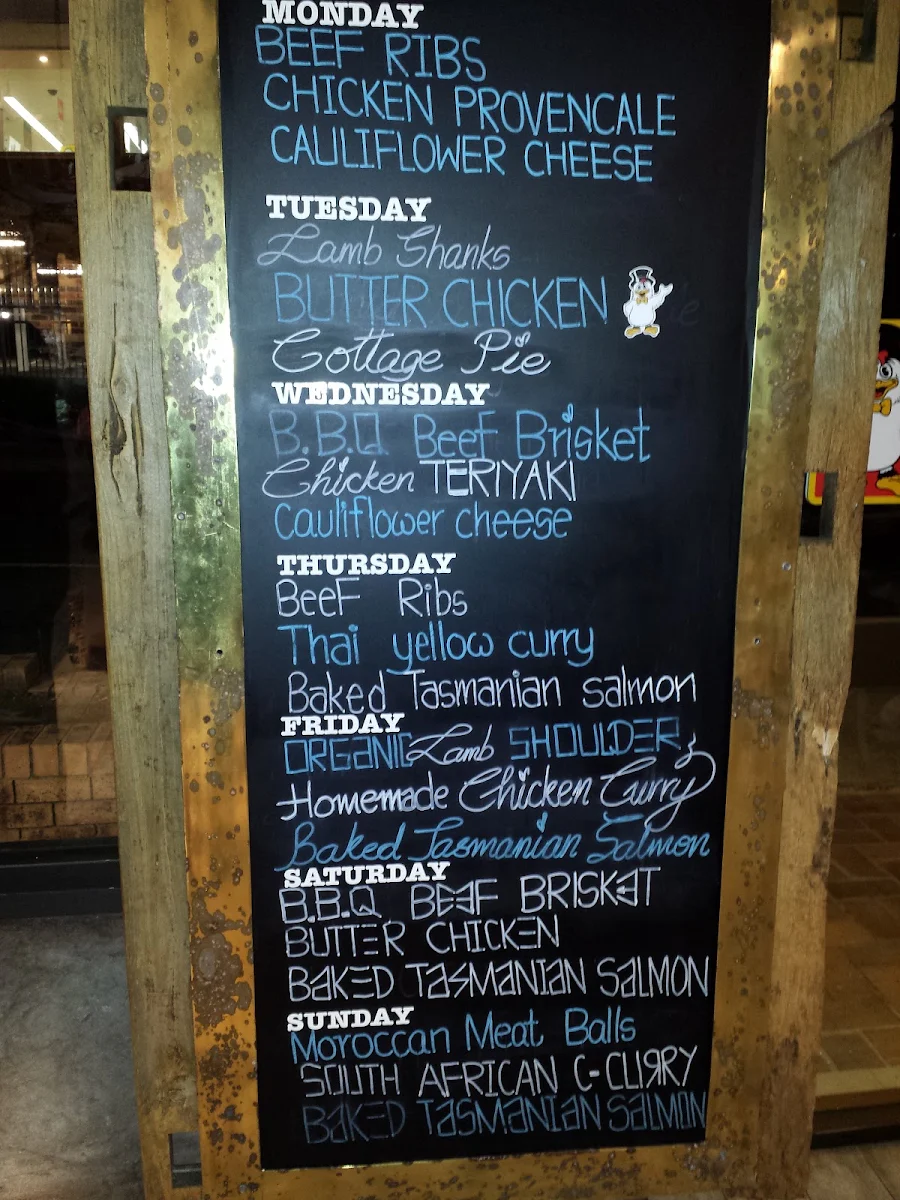 MONDAY
BEEF RIBS
CHICKEN PROVENCALE
CAULIFLOWER CHEESE
TUESDAY
Lamb Shanks
BUTTER CHICKEN
Cottage Pie
WEDNESDAY
B.B.Q Beef Brisket
Chicken TERIYAKI
Cauliflower cheese
THURSDAY
BeeF Ribs
Thai yellow curry
Baked Tasmanian salmon
FRIDAY
ORGANIC Lamb SHOULDER
Homemade Chicken Curry
Baked Tasmanian Salmon
SATURDAY
B.B.Q. BEEF BRISKET
BUTTER CHICKEN
BAKED TASMANIAN SALMON
SUNDAY
Moroccan Meat Balls
SOUTH AFRICAN C-CURRY
BAKED TASMANIAN SALMON